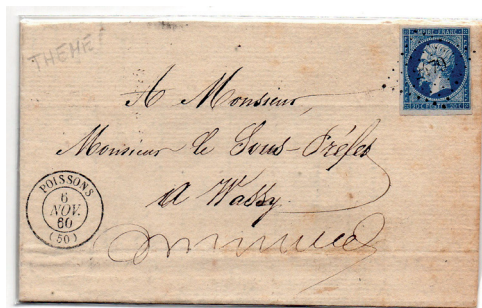 THEME
EMPIRE FRANC
A Monsieur,
Monsieur le Sous-Préfet
a Wassy.
POISSONS
6
NOV.
60
(50)